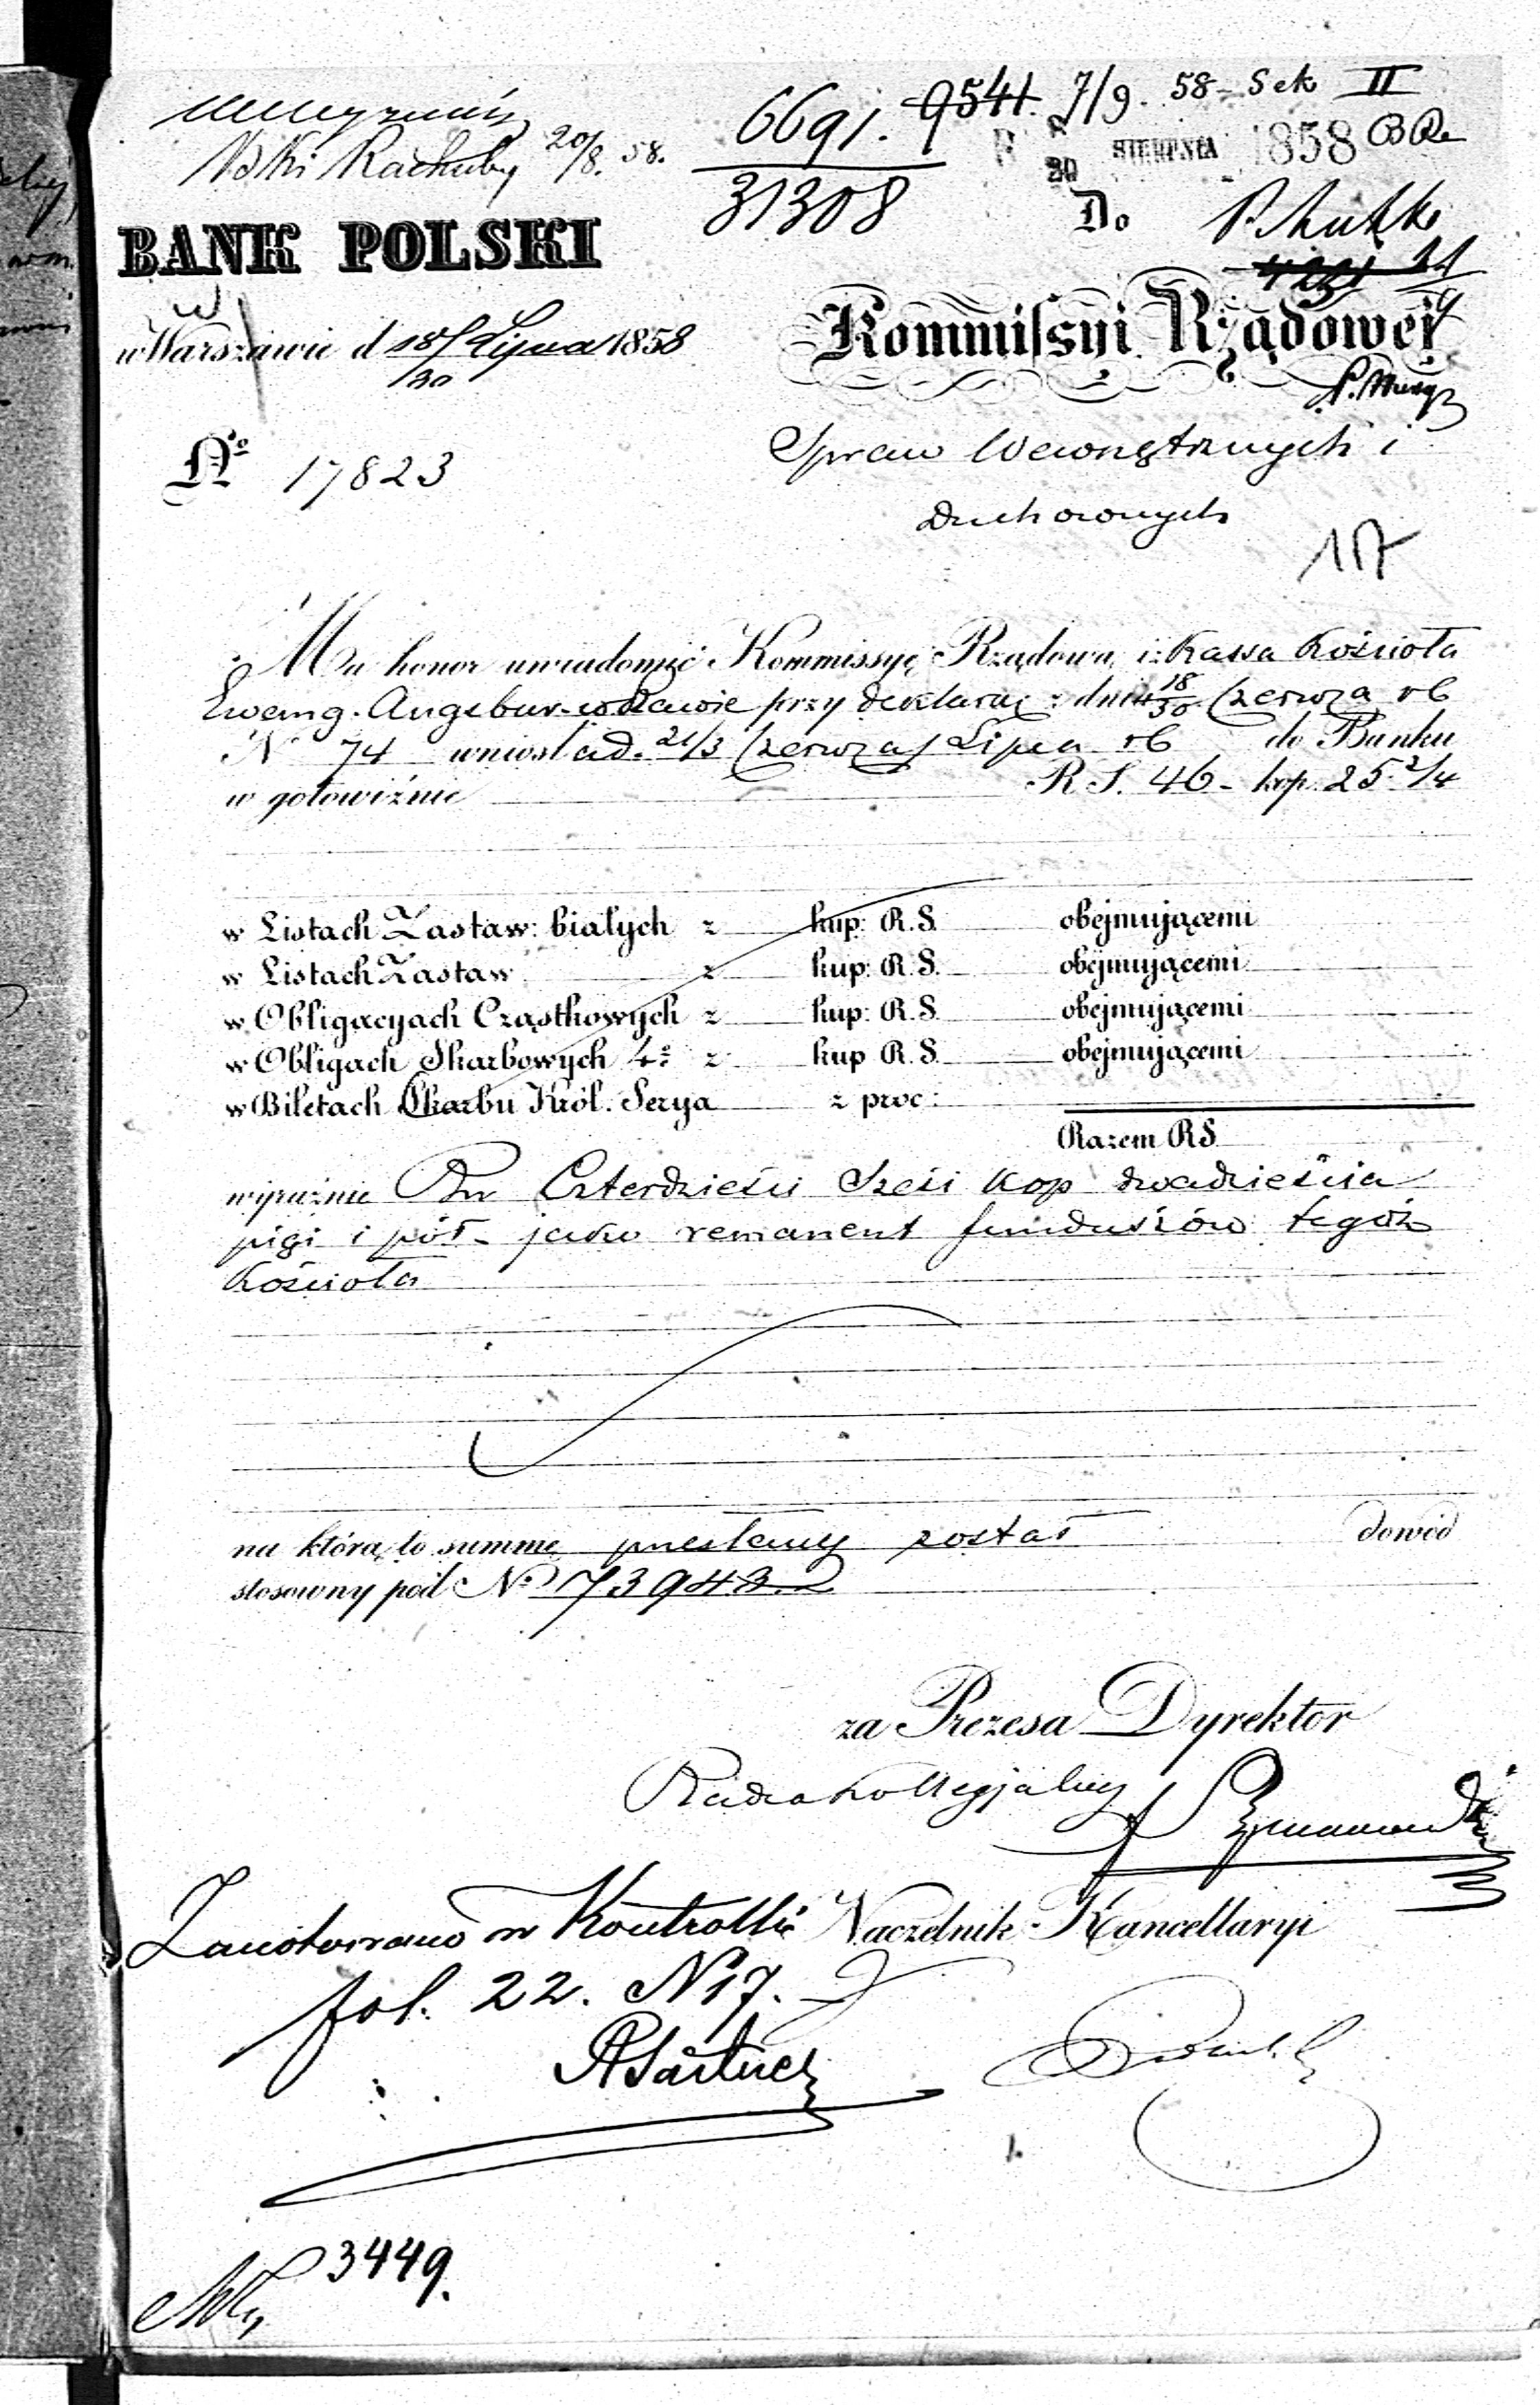 20/8. 58.
6691. 9541. 7/9. 58 – Sek II
31308
20 SIERPNIA 1858
BANK POLSKI
Do
w Warszawie d 18/30 Lipca 1858
Kommissyi Rządowej
No 17823
Spraw Wewnętrznych i
Duchownych
117
Ma honor uwiadomić Kommissyę Rządową, iż Kassa Kościoła
Ewang. Augsbur. w przy deklaracji z dnia 18/30 Czerwca rb
N 74 wniosła d. 21/3 Czerwca/Lipca rb do Banku
w gotowiźnie R S. 46 - kop. 25 2/4
w Listach Zastaw: białych z kup: R. S. obejmującemi
w Listach Zastaw z kup: R. S. obejmującemi
w Obligacyach Cząstkowych z kup: R. S. obejmującemi
w Obligach Skarbowych 4% z kup R. S. obejmującemi
w Biletach Skarbu Król. Serya z proc:
Razem RS
wyraźnie Rsr Czterdzieści Sześć Kop dwadzieścia
pięć i pół - jako remanent funduszów tegoż
Kościoła
na którą to summę przesłany został dowód
stosowny pod No 73943
za Prezesa Dyrektor
Radca Kollegjalny
Zanotowano w Kontrolli Naczelnik Kancellaryi
fol. 22. N 17.
3449.